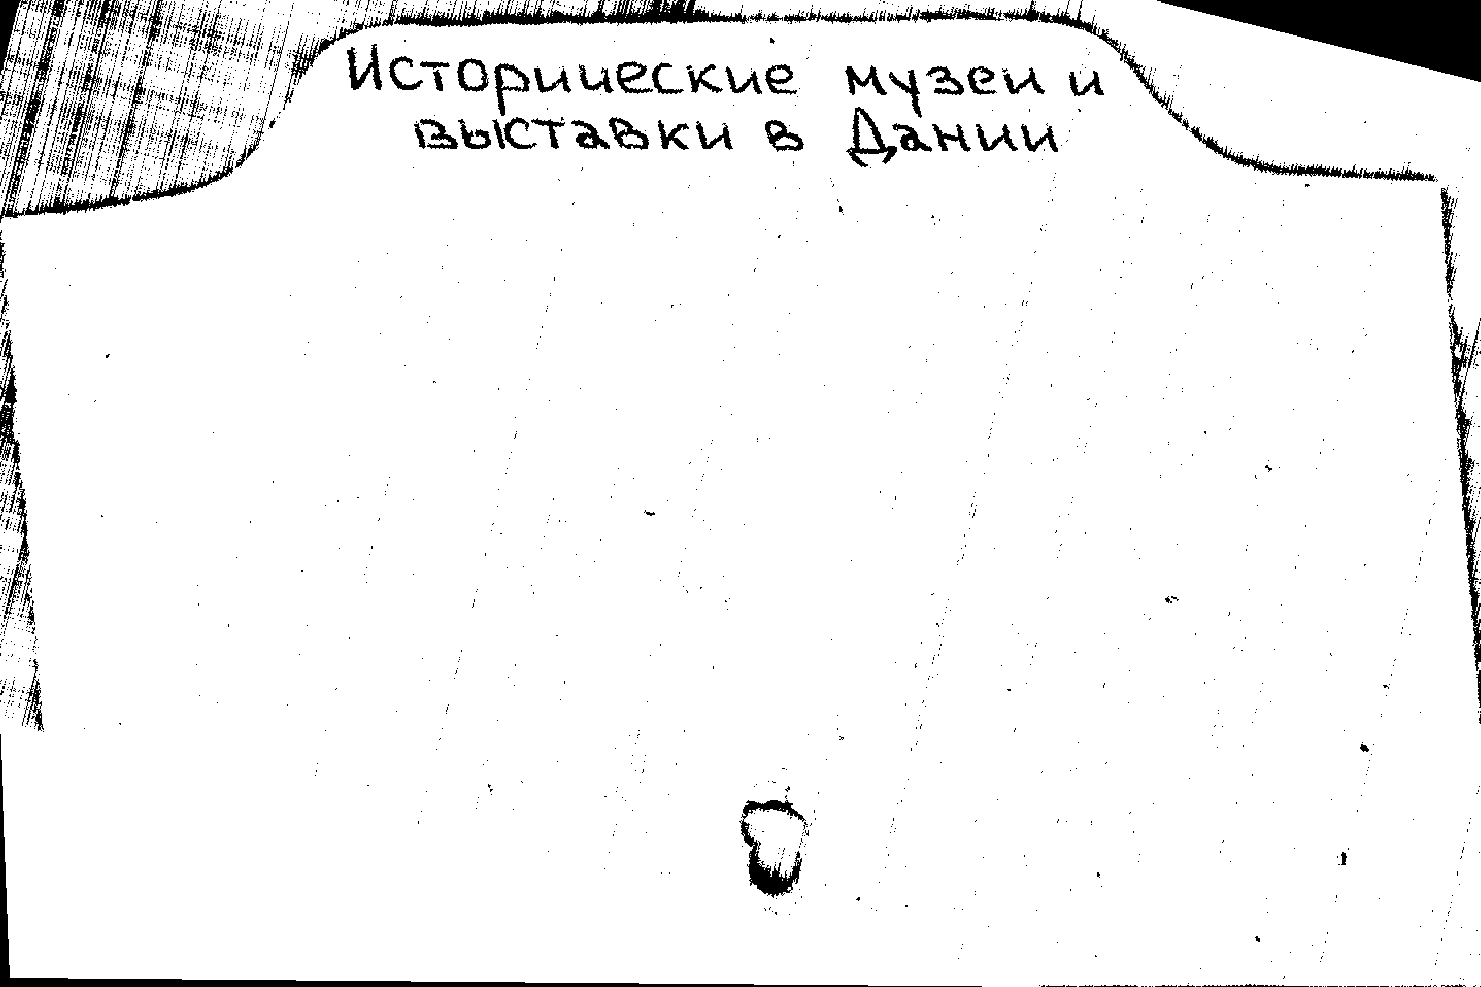 Исторические музеи и
выставки в Дании